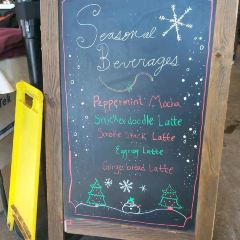 Seasonal
Beverages
Peppermint Mocha
Snickerdoodle Latte
Smoke Stack Latte
Eggnog Latte
Gingerbread Latte